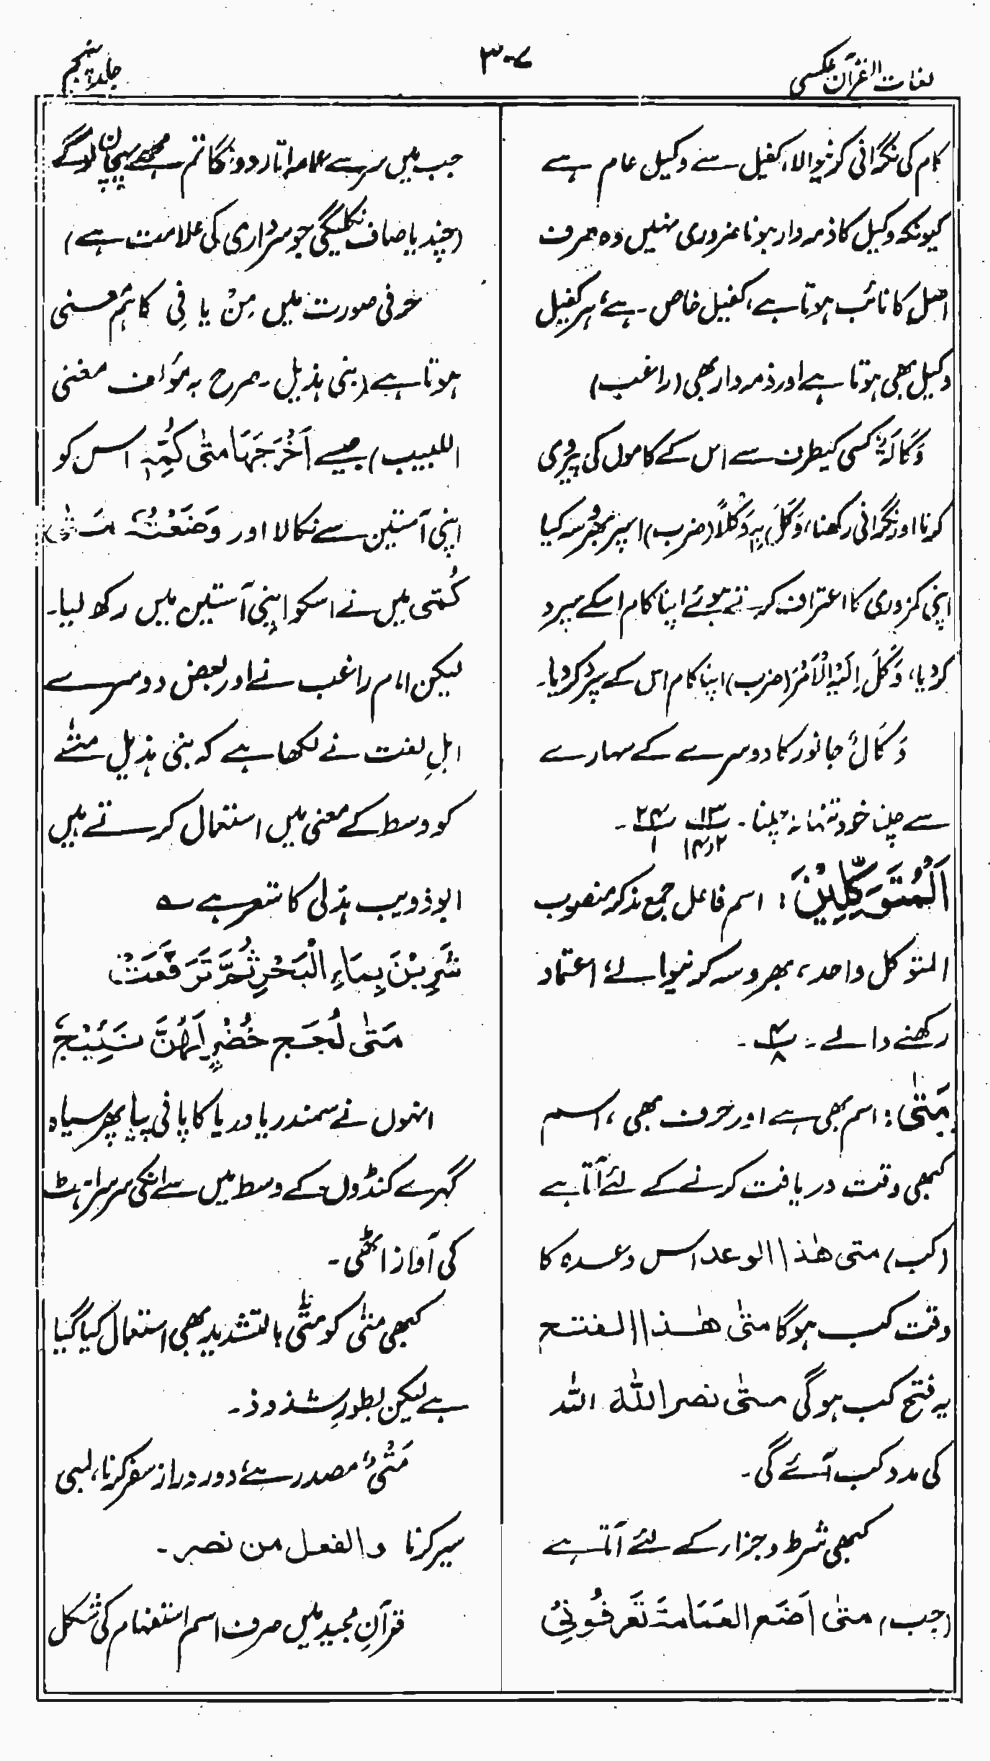 لغات القرآن عکسی
۳۰۷
جلد پنجم
کام کی نگرانی کرنیوالا، کفیل سے وکیل عام ہے
کیونکہ وکیل کا ذمہ دار ہونا ضروری نہیں وہ صرف
اصل کا نائب ہوتا ہے، کفیل خاص ہے، ہر کفیل
وکیل بھی ہوتا ہے اور ذمہ دار بھی (راغب)
وَکَالَۃٌ کسی کیطرف سے اس کے کاموں کی پیروی
کرنا اور نگرانی رکھنا، وَکَلَ بِہٖ وَکْلًا (ضرب) اسپر بھروسہ کیا
اپنی کمزوری کا اعتراف کرتے ہوئے اپنا کام اسکے سپرد
کردیا، وَکَلَ اِلَیْہِ الْاَمْرَ (ضرب) اپنا کام اس کے سپرد کردیا۔
وَکَالٌ جانور کا دوسرے کے سہارے
سے چلنا خود تنہا نہ چلنا۔
اَلْمُتَوَکِّلِیْنَ: اسم فاعل جمع مذکر منصوب
المتوکل واحد، بھروسہ کرنیوالے، اعتماد
رکھنے والے۔ ۴/۸۔
مَتٰی: اسم بھی ہے اور حرف بھی، اسم
کبھی وقت دریافت کرنے کے لئے آتا ہے
(کب) متی ھٰذا الوعد اس وعدہ کا
وقت کب ہوگا متیٰ ھٰذا الفتح
یہ فتح کب ہوگی متیٰ نصر اللہ اللہ
کی مدد کب آئے گی۔
کبھی شرط و جزا کے لئے آتا ہے
(جب) متیٰ اَضَع العَمَامۃَ تَعرفُونیْ
جب میں سر سے عمامہ اتار دونگا تم مجھے پہچان لوگے
(چندیا صاف نکلیگی جو سرداری کی علامت ہے)
حرفی صورت میں مِنْ یا فِی کا ہم معنی
ہوتا ہے (بنی ہذیل۔ صرح بہ مؤلف مغنی
اللبیب) جیسے اَخْرَجَہَا متیٰ کُمِّہٖ اس کو
اپنی آستین سے نکالا اور وَضَعْتُہٗ مَتٰی
کُمّی میں نے اسکو اپنی آستین میں رکھ لیا۔
لیکن امام راغب نے اور بعض دوسرے
اہلِ لغت نے لکھا ہے کہ بنی ہذیل متٰے
کو وسط کے معنی میں استعمال کرتے ہیں
ابو ذویب ہذلی کا شعر ہے ؎
شَرِبْنَ بِمَاءِ الْبَحْرِ ثُمَّ تَرَفَّعَتْ
مَتٰی لُجَجٍ خُضْرٍ لَھُنَّ نَئِیْجُ
انہوں نے سمندر یا دریا کا پانی پیا پھر سیاہ
گہرے کنڈوں کے وسط میں سے انکی سرسراہٹ
کی آواز اٹھی۔
کبھی متیٰ کو متّٰی بالتشدید بھی استعمال کیا گیا
ہے لیکن بطور شذوذ۔
مَتْیٌ مصدر ہے، دور دراز سفر کرنا، لمبی
سیر کرنا والفعل من نصر۔
قرآن مجید میں صرف اسم استفہام کی شکل